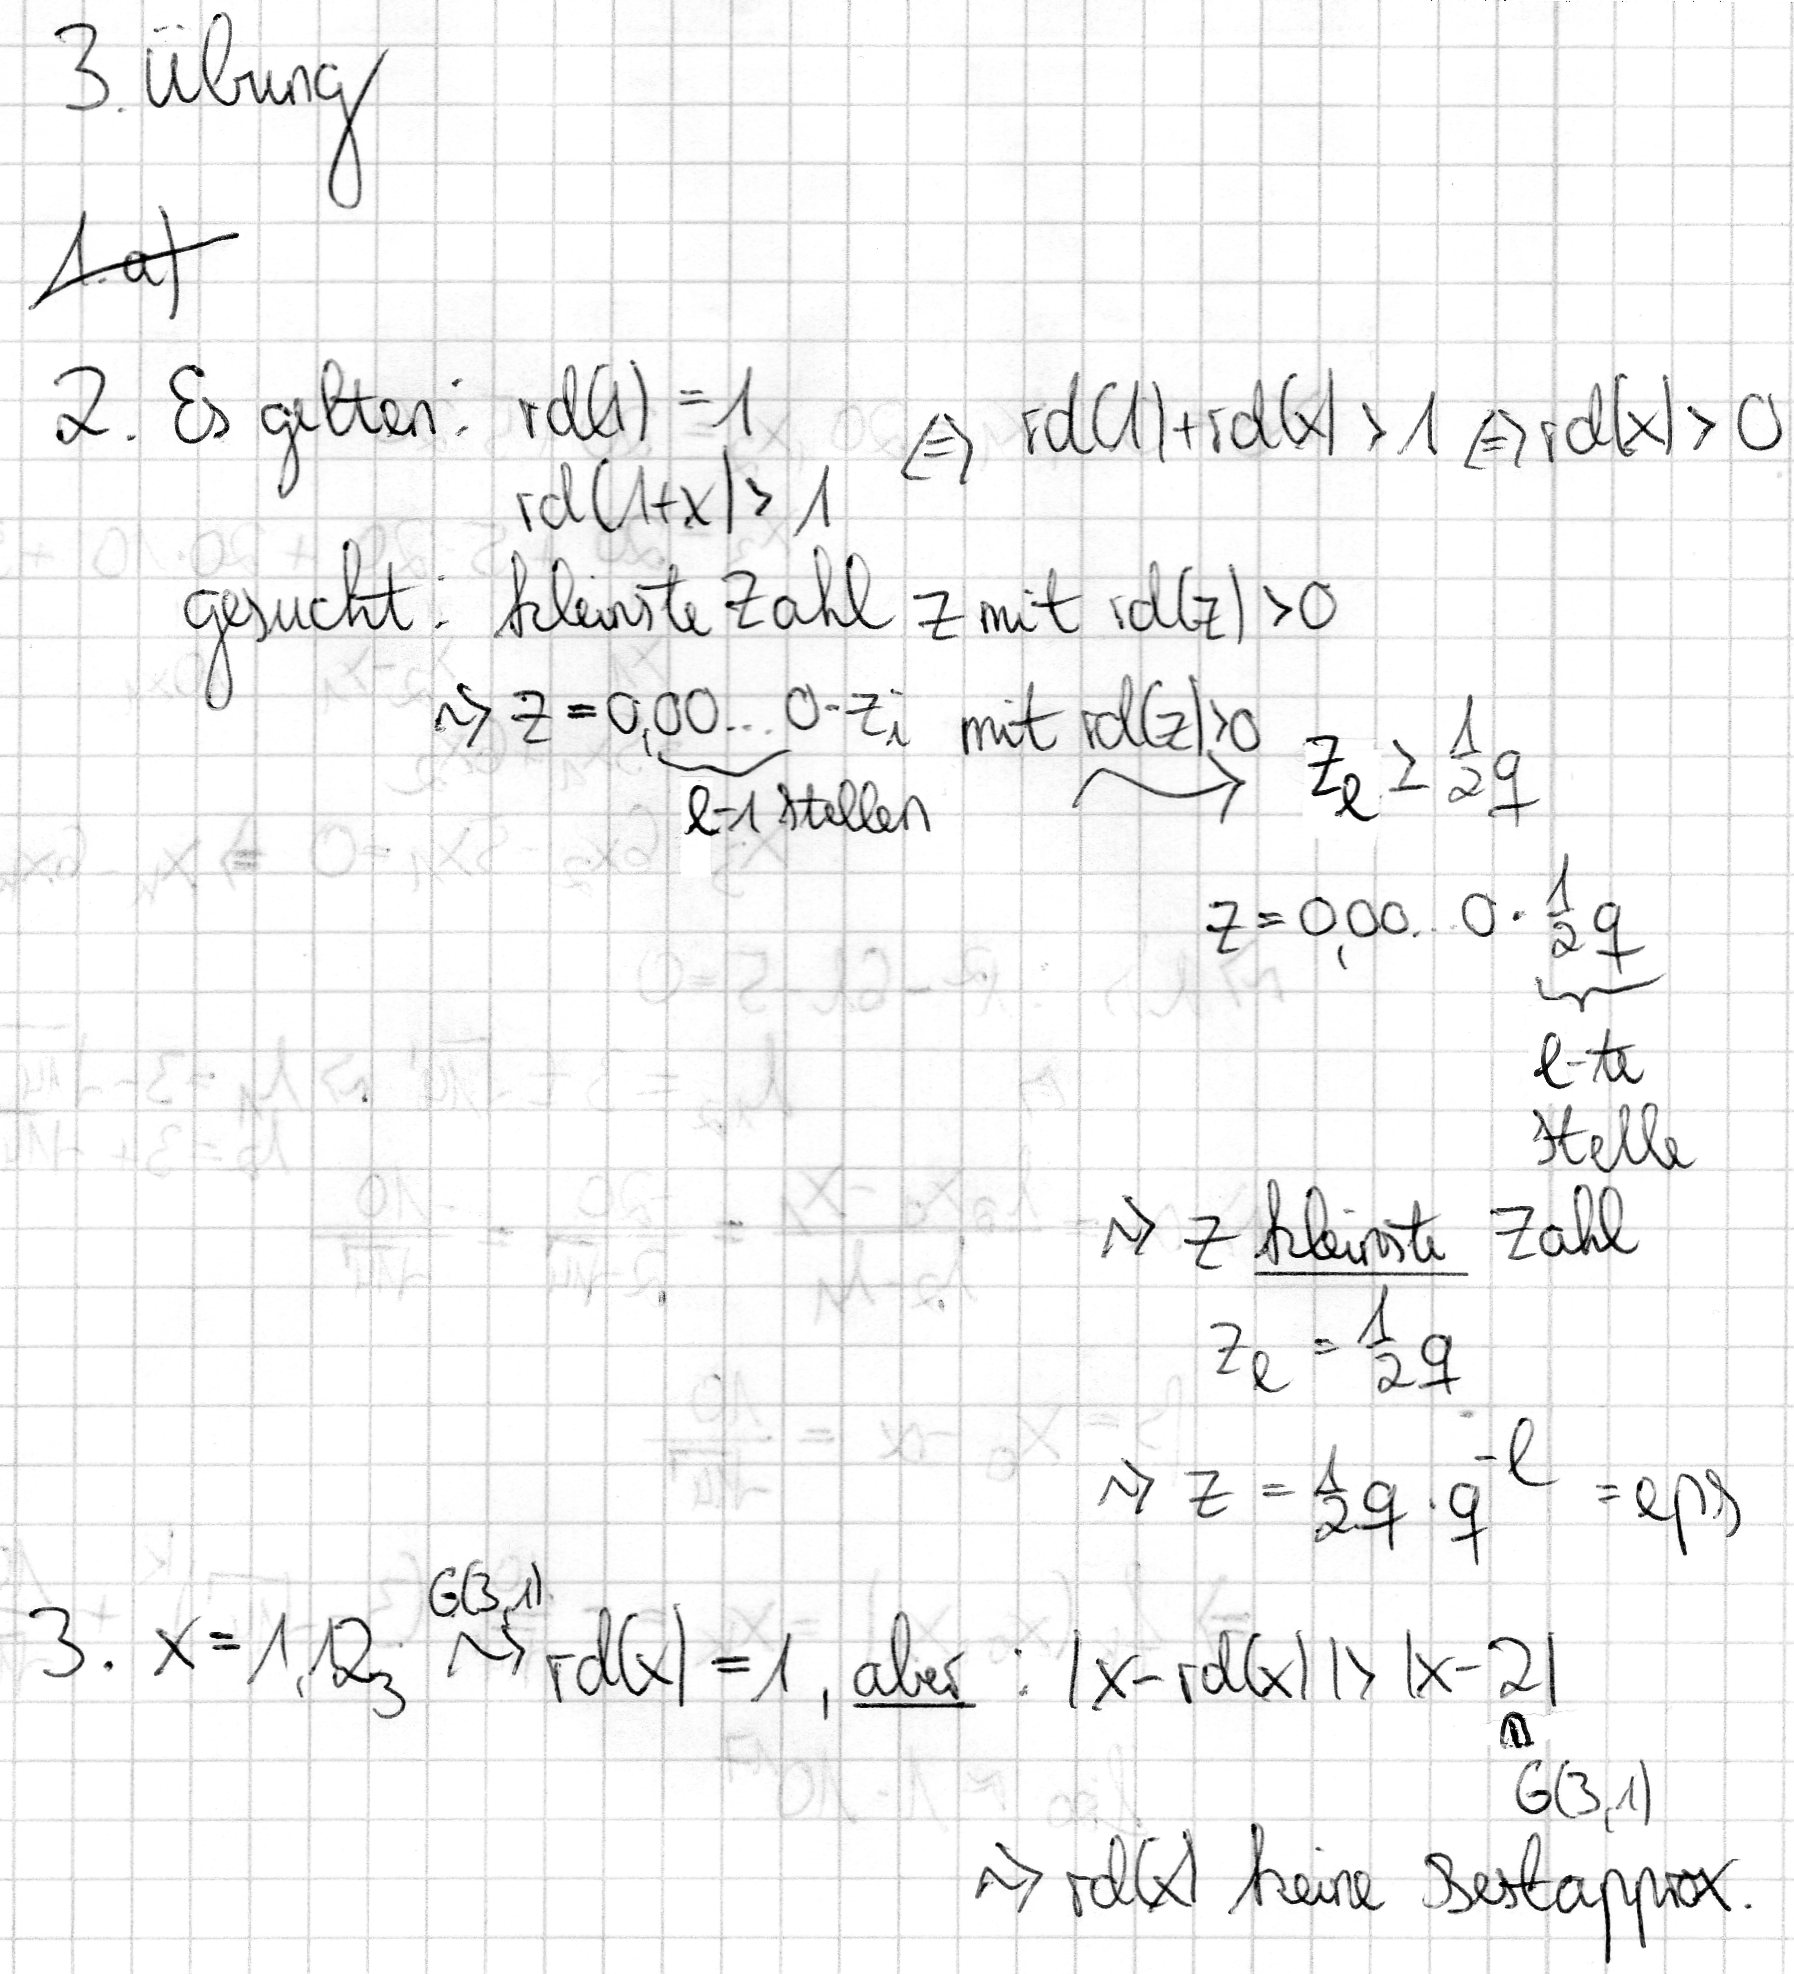 3. Übung
1. a)
2. Es gelten: rd(1) = 1 ⇔ rd(1)+rd(x) > 1 ⇔ rd(x) > 0
rd(1+x) > 1
gesucht: kleinste Zahl z mit rd(z) > 0
⇝ z = 0,00...0·z_i mit rd(z)>0
l-1 Stellen
z_l ≥ 1/2 q
z = 0,00...0 · 1/2 q
l-te
Stelle
⇝ z kleinste Zahl
z_l = 1/2 q
⇝ z = 1/2 q · q^-l = eps
3. x = 1,12_3 G(3,1) ⇝ rd(x) = 1, aber: |x-rd(x)| > |x-2|
G(3,1)
⇝ rd(x) keine Bestapprox.